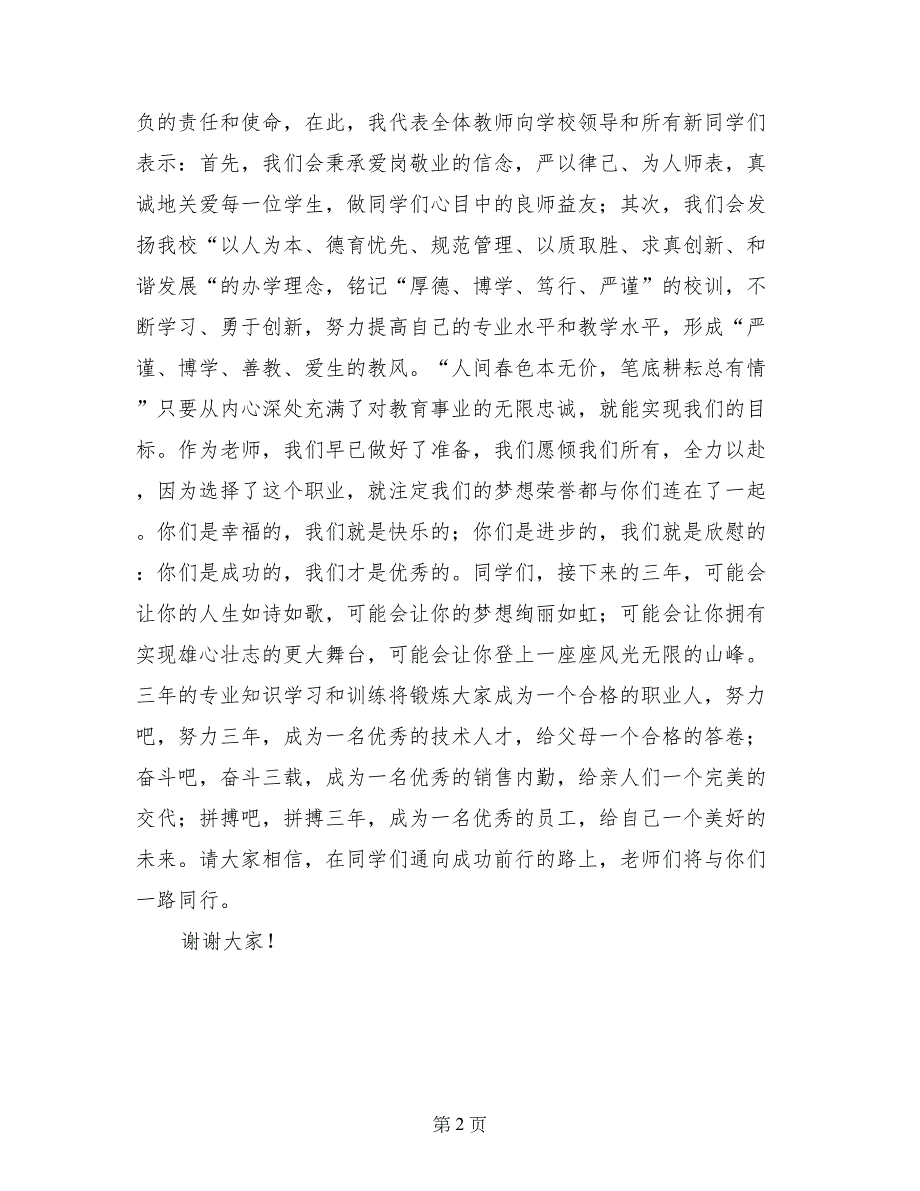 负的责任和使命，在此，我代表全体教师向学校领导和所有新同学们
表示：首先，我们会秉承爱岗敬业的信念，严以律己、为人师表，真
诚地关爱每一位学生，做同学们心目中的良师益友；其次，我们会发
扬我校“以人为本、德育忧先、规范管理、以质取胜、求真创新、和
谐发展“的办学理念，铭记“厚德、博学、笃行、严谨”的校训，不
断学习、勇于创新，努力提高自己的专业水平和教学水平，形成“严
谨、博学、善教、爱生的教风。“人间春色本无价，笔底耕耘总有情
”只要从内心深处充满了对教育事业的无限忠诚，就能实现我们的目
标。作为老师，我们早已做好了准备，我们愿倾我们所有，全力以赴
，因为选择了这个职业，就注定我们的梦想荣誉都与你们连在了一起
。你们是幸福的，我们就是快乐的；你们是进步的，我们就是欣慰的
：你们是成功的，我们才是优秀的。同学们，接下来的三年，可能会
让你的人生如诗如歌，可能会让你的梦想绚丽如虹；可能会让你拥有
实现雄心壮志的更大舞台，可能会让你登上一座座风光无限的山峰。
三年的专业知识学习和训练将锻炼大家成为一个合格的职业人，努力
吧，努力三年，成为一名优秀的技术人才，给父母一个合格的答卷；
奋斗吧，奋斗三载，成为一名优秀的销售内勤，给亲人们一个完美的
交代；拼搏吧，拼搏三年，成为一名优秀的员工，给自己一个美好的
未来。请大家相信，在同学们通向成功前行的路上，老师们将与你们
一路同行。
谢谢大家！
第 2 页